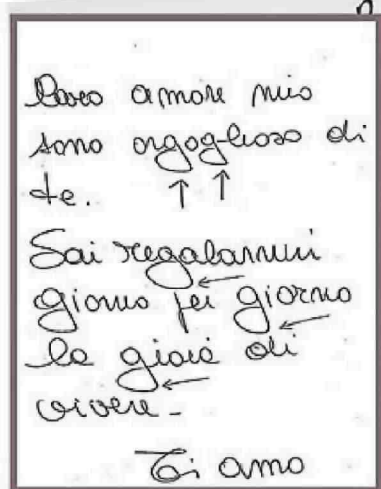 Caro amore mio
sono orgoglioso di
te.
Sai regalarmi
giorno per giorno
la gioia di
vivere-
Ti amo